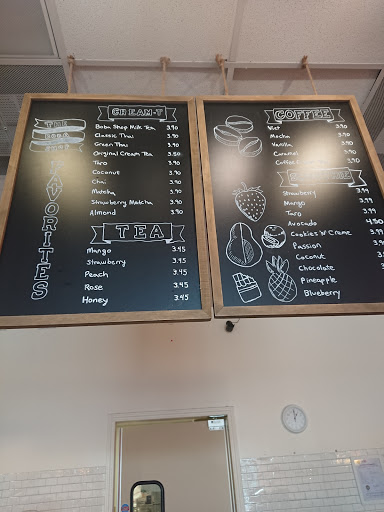 THE
BOBA
SHOP
FAVORITES
CREAM-T
Boba Shop Milk Tea 3.90
Classic Thai 3.90
Green Thai 3.90
Original Cream Tea 3.50
Taro 3.90
Coconut 3.90
Chai 3.90
Matcha 3.90
Strawberry Matcha 3.90
Almond 3.90
TEA
Mango 3.45
Strawberry 3.45
Peach 3.45
Rose 3.45
Honey 3.45
COFFEE
Viet 3.90
Mocha 3.90
Vanilla 3.90
Caramel 3.90
Coffee 3.90
Strawberry 3.99
Mango 3.99
Taro 3.99
Avocado 4.50
Cookies 'N' Creme 3.99
Passion 3.99
Coconut 3.99
Chocolate 3.99
Pineapple 3.99
Blueberry 3.99